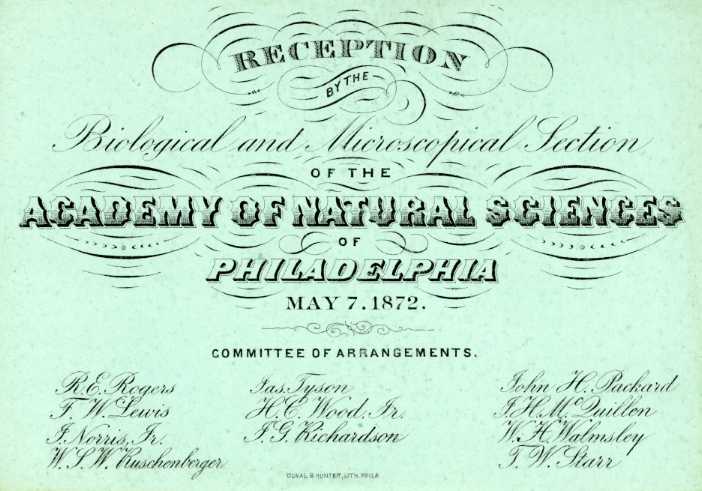 RECEPTION
BY THE
Biological and Microscopical Section
OF THE
ACADEMY OF NATURAL SCIENCES
OF
PHILADELPHIA
MAY 7. 1872.
COMMITTEE OF ARRANGEMENTS.
R. E. Rogers
F. W. Lewis
J. Norris, Jr.
W. S. W. Ruschenberger
Jas. Tyson
H. C. Wood, Jr.
J. G. Richardson
John H. Packard
J. H. McQuillen
W. H. Walmsley
T. W. Starr
DUVAL & HUNTER, LITH. PHILA